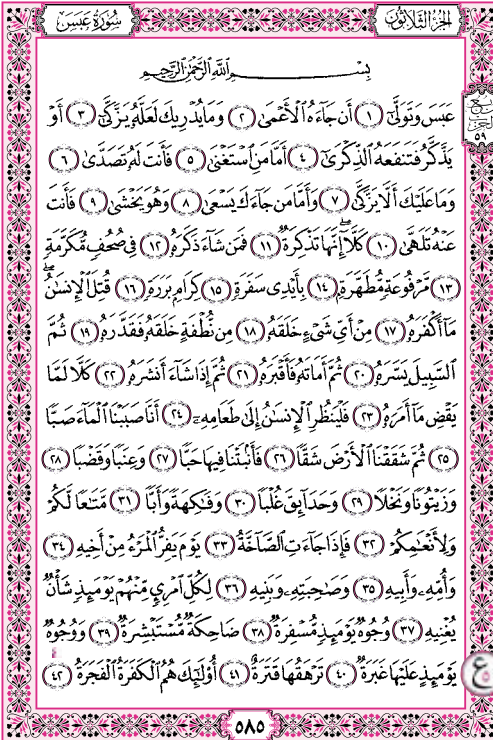 الجزء الثلاثون
سورة عبس
بِسْمِ اللَّهِ الرَّحْمَٰنِ الرَّحِيمِ
عَبَسَ وَتَوَلَّىٰ ﴿١﴾ أَن جَاءَهُ الْأَعْمَىٰ ﴿٢﴾ وَمَا يُدْرِيكَ لَعَلَّهُ يَزَّكَّىٰ ﴿٣﴾ أَوْ
يَذَّكَّرُ فَتَنفَعَهُ الذِّكْرَىٰ ﴿٤﴾ أَمَّا مَنِ اسْتَغْنَىٰ ﴿٥﴾ فَأَنتَ لَهُ تَصَدَّىٰ ﴿٦﴾
وَمَا عَلَيْكَ أَلَّا يَزَّكَّىٰ ﴿٧﴾ وَأَمَّا مَن جَاءَكَ يَسْعَىٰ ﴿٨﴾ وَهُوَ يَخْشَىٰ ﴿٩﴾ فَأَنتَ
عَنْهُ تَلَهَّىٰ ﴿١٠﴾ كَلَّا إِنَّهَا تَذْكِرَةٌ ﴿١١﴾ فَمَن شَاءَ ذَكَرَهُ ﴿١٢﴾ فِي صُحُفٍ مُّكَرَّمَةٍ
﴿١٣﴾ مَّرْفُوعَةٍ مُّطَهَّرَةٍ ﴿١٤﴾ بِأَيْدِي سَفَرَةٍ ﴿١٥﴾ كِرَامٍ بَرَرَةٍ ﴿١٦﴾ قُتِلَ الْإِنسَٰنُ
مَا أَكْفَرَهُ ﴿١٧﴾ مِنْ أَيِّ شَيْءٍ خَلَقَهُ ﴿١٨﴾ مِن نُّطْفَةٍ خَلَقَهُ فَقَدَّرَهُ ﴿١٩﴾ ثُمَّ
السَّبِيلَ يَسَّرَهُ ﴿٢٠﴾ ثُمَّ أَمَاتَهُ فَأَقْبَرَهُ ﴿٢١﴾ ثُمَّ إِذَا شَاءَ أَنشَرَهُ ﴿٢٢﴾ كَلَّا لَمَّا
يَقْضِ مَا أَمَرَهُ ﴿٢٣﴾ فَلْيَنظُرِ الْإِنسَٰنُ إِلَىٰ طَعَامِهِ ﴿٢٤﴾ أَنَّا صَبَبْنَا الْمَاءَ صَبًّا
﴿٢٥﴾ ثُمَّ شَقَقْنَا الْأَرْضَ شَقًّا ﴿٢٦﴾ فَأَنبَتْنَا فِيهَا حَبًّا ﴿٢٧﴾ وَعِنَبًا وَقَضْبًا ﴿٢٨﴾
وَزَيْتُونًا وَنَخْلًا ﴿٢٩﴾ وَحَدَائِقَ غُلْبًا ﴿٣٠﴾ وَفَٰكِهَةً وَأَبًّا ﴿٣١﴾ مَّتَٰعًا لَّكُمْ
وَلِأَنْعَٰمِكُمْ ﴿٣٢﴾ فَإِذَا جَاءَتِ الصَّاخَّةُ ﴿٣٣﴾ يَوْمَ يَفِرُّ الْمَرْءُ مِنْ أَخِيهِ ﴿٣٤﴾
وَأُمِّهِ وَأَبِيهِ ﴿٣٥﴾ وَصَٰحِبَتِهِ وَبَنِيهِ ﴿٣٦﴾ لِكُلِّ امْرِئٍ مِّنْهُمْ يَوْمَئِذٍ شَأْنٌ
يُغْنِيهِ ﴿٣٧﴾ وُجُوهٌ يَوْمَئِذٍ مُّسْفِرَةٌ ﴿٣٨﴾ ضَاحِكَةٌ مُّسْتَبْشِرَةٌ ﴿٣٩﴾ وَوُجُوهٌ
يَوْمَئِذٍ عَلَيْهَا غَبَرَةٌ ﴿٤٠﴾ تَرْهَقُهَا قَتَرَةٌ ﴿٤١﴾ أُولَٰئِكَ هُمُ الْكَفَرَةُ الْفَجَرَةُ ﴿٤٢﴾
٥٨٥